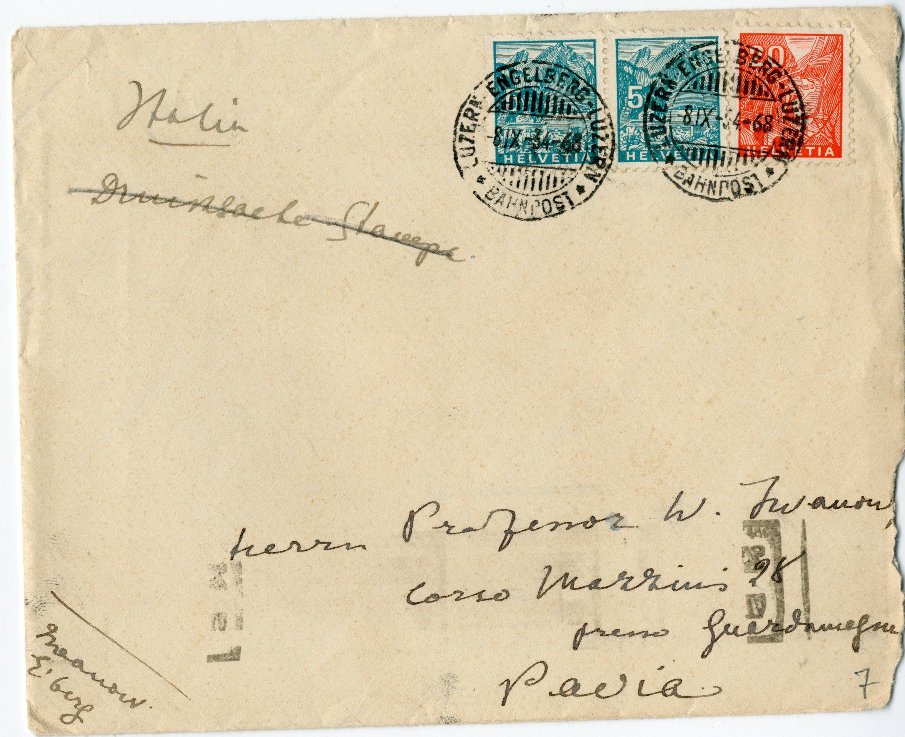 Italia
LUZERN-ENGELBERG-LUZERN
8.IX.-34-68
* BAHNPOST *
HELVETIA
5
HELVETIA
LUZERN-ENGELBERG-LUZERN
8.IX.-34-68
* BAHNPOST *
HELVETIA
Drucksache Stampe
Herrn Professor W. Iwanow,
Corso Mazzini 28
presso Guardamagna
Pavia
Iwanow.
E'berg
7